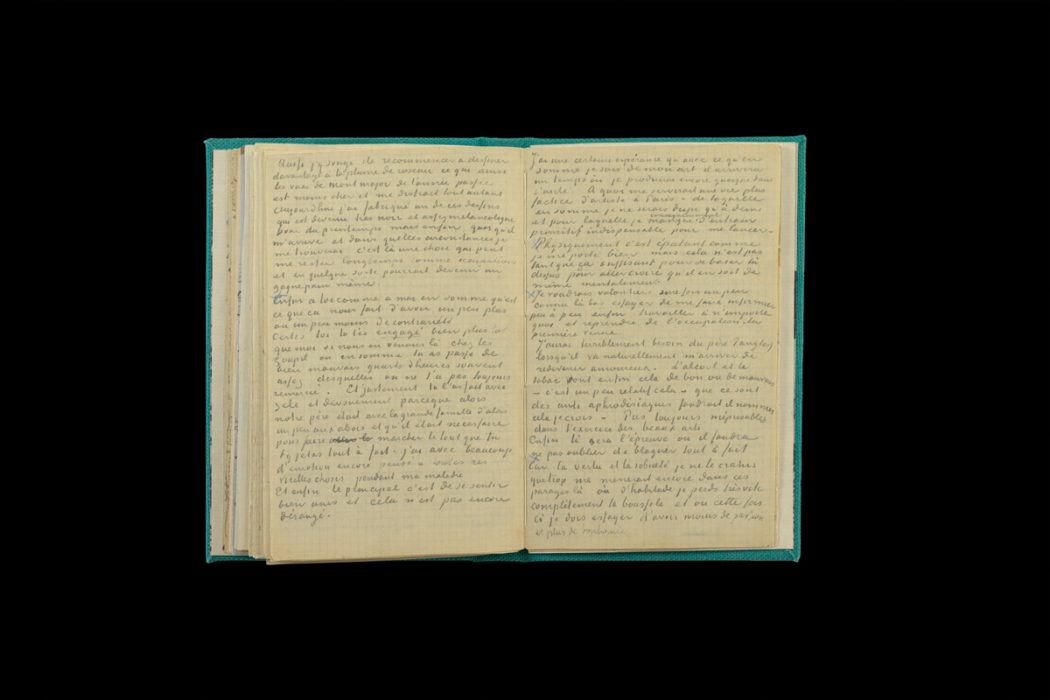 Aussi j'y songe de recommencer à dessiner
davantage à la plume de roseau ce que ainsi
les vues de mont major de l'année passée
est moins cher et me distrait tout autant
Aujourd'hui j'ai fabriqué un de ces dessins
qui est devenu très noir et assez mélancolique
pour du printemps mais enfin quoi qu'il
m'arrive et dans quelles circonstances je
me trouverai c'est là une chose qui peut
me rester longtemps comme occupation
et en quelque sorte pourrait devenir un
gagnepain même.
Enfin à toi comme à moi en somme qu'est
ce que ça nous fait d'avoir un peu plus
ou un peu moins de contrariété
Certes toi tu t'es engagé bien plus tôt
que moi si nous en venons là chez les
Goupil où en somme tu as passé de
bien mauvais quarts d'heures souvent
assez desquelles on ne t'a pas toujours
remercié. Et justement tu l'as fait avec
zèle et dévouement parceque alors
notre père était avec la grande famille d'alors
un peu aux abois et qu'il était nécessaire
pour faire marcher le tout que tu
t'y jetas tout à fait. j'ai avec beaucoup
d'émotion encore pensé à toutes ces
vieilles choses pendant ma maladie
Et enfin le principal c'est de se sentir
bien unis et cela n'est pas encore
dérangé.
J'ai une certaine espérance qu'avec ce qu'en
somme je sais de mon art il arrivera
un temps où je produirai encore quoique dans
l'asile. A quoi me servirait une vie plus
factice d'artiste à Paris – de laquelle
en somme je ne serais dupe qu'à demi
et pour laquelle je manque d'entrain
primitif indispensable pour me lancer.
Physiquement c'est épatant comme
je me porte bien mais cela n'est pas
tant que ça suffisant pour se baser là
dessus pour aller croire qu'il en soit de
même mentalement.
Je voudrais volontiers une fois un peu
connu là bas essayer de me faire infirmier
peu à peu enfin travailler à n'importe
quoi et reprendre de l'occupation. la
première venue.
J'aurai terriblement besoin du père Pangloss
lorsqu'il va naturellement m'arriver de
redevenir amoureux. L'alcool et le
tabac ont enfin cela de bon ou de mauvais
– c'est un peu relatif cela – que ce sont
des anti aphrodisiaques faudrait il nommer
cela je crois – Pas toujours méprisables
dans l'exercice des beaux arts.
Enfin là sera l'épreuve où il faudra
ne pas oublier de blaguer tout à fait
Car la vertu et la sobriété je ne le crains
que trop me meneraient encore dans ces
parages là où d'habitude je perds très vite
complètement la boussole et où cette fois
ci je dois essayer d'avoir moins de passion
et plus de bonhomie